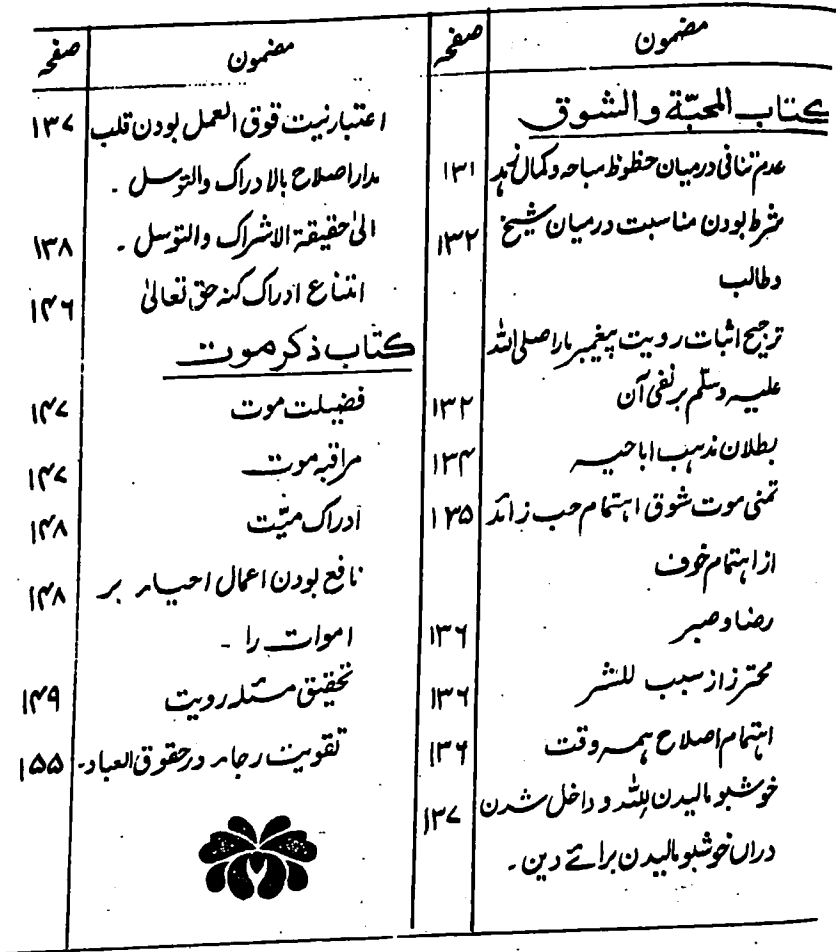 مضمون صفحہ
کتاب المحبّة والشوق
عدم تنافی درمیان حظوظ مباحہ وکمال زہد ۱۳۱
شرط بودن مناسبت درمیان شیخ ۱۳۲
وطالب
ترجیح اثبات رویت پیغمبر ما را صلی اللہ
علیہ وسلّم بر نفی آن ۱۳۲
بطلان مذہب اباحیہ ۱۳۴
تمنی موت شوق اہتمام حب زائد ۱۳۵
از اہتمام خوف
رضا وصبر ۱۳۶
محترز از سبب للشر ۱۳۶
اہتمام اصلاح ہمہ وقت ۱۳۶
خوشبو مالیدن للہ و داخل شدن ۱۳۷
دراں خوشبو مالیدن برائے دین ۔
مضمون صفحہ
اعتبار نیت فوق العمل بودن قلب ۱۳۷
مدار اصلاح بالادراک والتوسل ۔
الیٰ حقیقة الاشراک والتوسل ۔ ۱۳۸
اتناع ادراک کنہ حق تعالیٰ ۱۴۶
کتاب ذکر موت
فضیلت موت ۱۴۷
مراقبہ موت ۱۴۷
ادراک میّت ۱۴۸
نافع بودن اعمال احیاء بر ۱۴۸
اموات را ۔
تحقیق مسئلہ رویت ۱۴۹
تقویت رجاء در حقوق العباد ۔ ۱۵۵